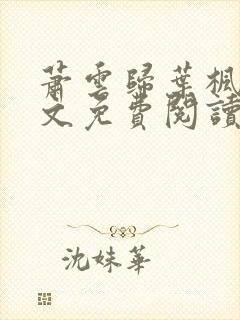 蕭雲歸葉楓
文免費閱讀
沈妹華